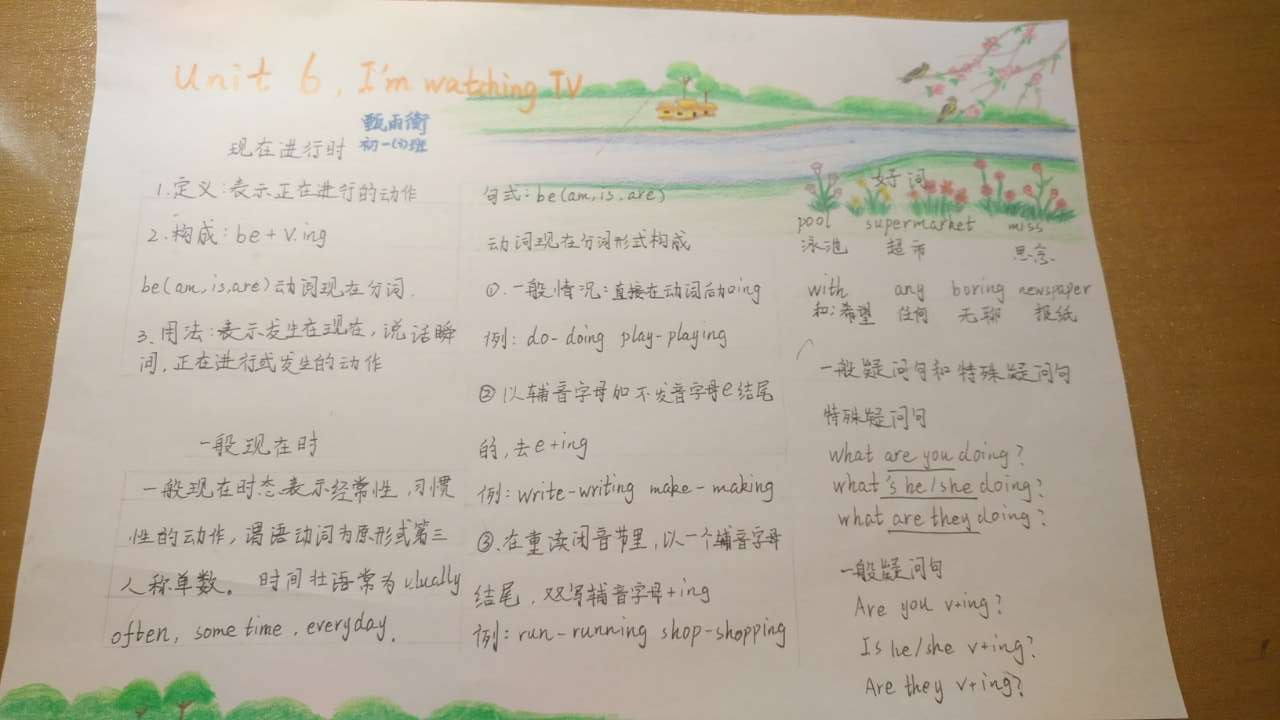 Unit 6, I'm watching TV
甄雨衡
初一(1)班
现在进行时
1.定义:表示正在进行的动作
2.构成:be+v.ing
be(am,is,are)动词现在分词.
3.用法:表示发生在现在,说话瞬
间,正在进行或发生的动作
一般现在时
一般现在时态表示经常性,习惯
性的动作,谓语动词为原形或第三
人称单数。时间壮语常为usually
often, some time, everyday.
句式:be(am,is,are)
动词现在分词形式构成
①.一般情况:直接在动词后加ing
例:do-doing play-playing
②以辅音字母加不发音字母e结尾
的,去e+ing
例:write-writing make-making
③.在重读闭音节里,以一个辅音字母
结尾,双写辅音字母+ing
例:run-running shop-shopping
好词
pool supermarket miss
泳池 超市 思念
with any boring newspaper
和;希望 任何 无聊 报纸
一般疑问句和特殊疑问句
特殊疑问句
what are you doing?
what's he/she doing?
what are they doing?
一般疑问句
Are you v+ing?
Is he/she v+ing?
Are they v+ing?